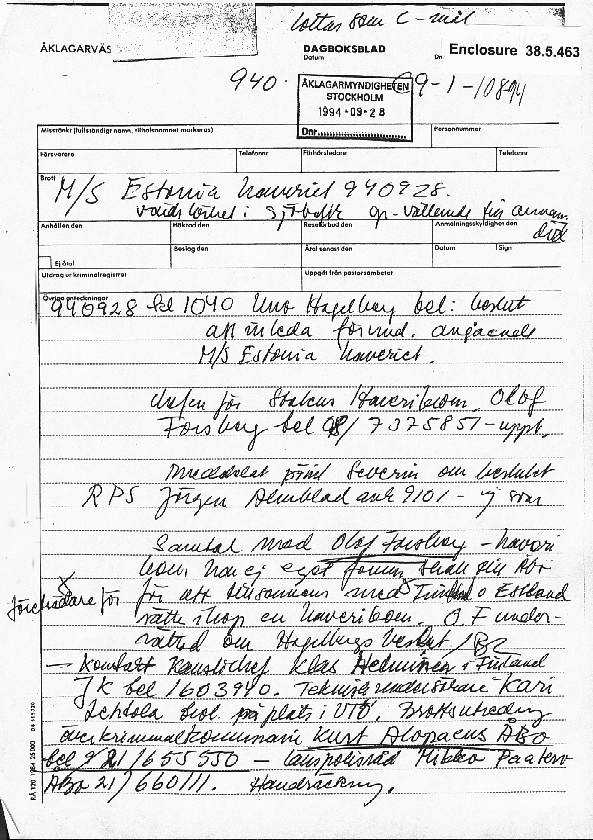 lottas som C-mål
ÅKLAGARVÄS
DAGBOKSBLAD
Datum
Dnr
Enclosure 38.5.463
940.
C9-1-108-94
ÅKLAGARMYNDIGHETEN
STOCKHOLM
1994-09-28
Dnr
Misstänkt (fullständigt namn, tilltalsnamnet markeras)
Personnummer
Försvarare
Telefonnr
Förhörsledare
Telefonnr
Brott
M/S Estonia haveriet 940928.
vårdslöshet i sjötrafik gr-vållande till annans
död
Anhållen den
Häktad den
Reseförbud den
Anmälningsskyldighet den
Beslag den
Åtal senast den
Datum
Sign
Ej åtal
Utdrag ur kriminalregistret
Uppgift från pastorsämbetet
Övriga anteckningar
940928 kl 1040 Uno Hagelberg bel: beslut
att inleda förund. angående
M/S Estonia haveriet.
Chefen för Statens Haverikom. Olof
Forsberg tel 08/7375851-uppt.
Meddelat Severin om beslutet
RPS Jörgen Almblad ank 9101 - ej som
Samtal med Olof Forsberg - haveri
kom har ej egen skall till Åbo
Företrädare för
för att tillsammans med Finland o Estland
sätta ihop en haverikom. O. F under-
rättad om Hagelbergs beslut /BR
- Kontakt Kanslichef Klas Helminen i Finland
JK tel 1603940. Kari
Lehtola på plats i UTÖ. Brottsutredning
överkriminalkommissarie Kurt Alopaeus ÅBO
tel 21/655550 - länspolisråd Mikko Paatero
ÅBO 21/660111. Handräckning.